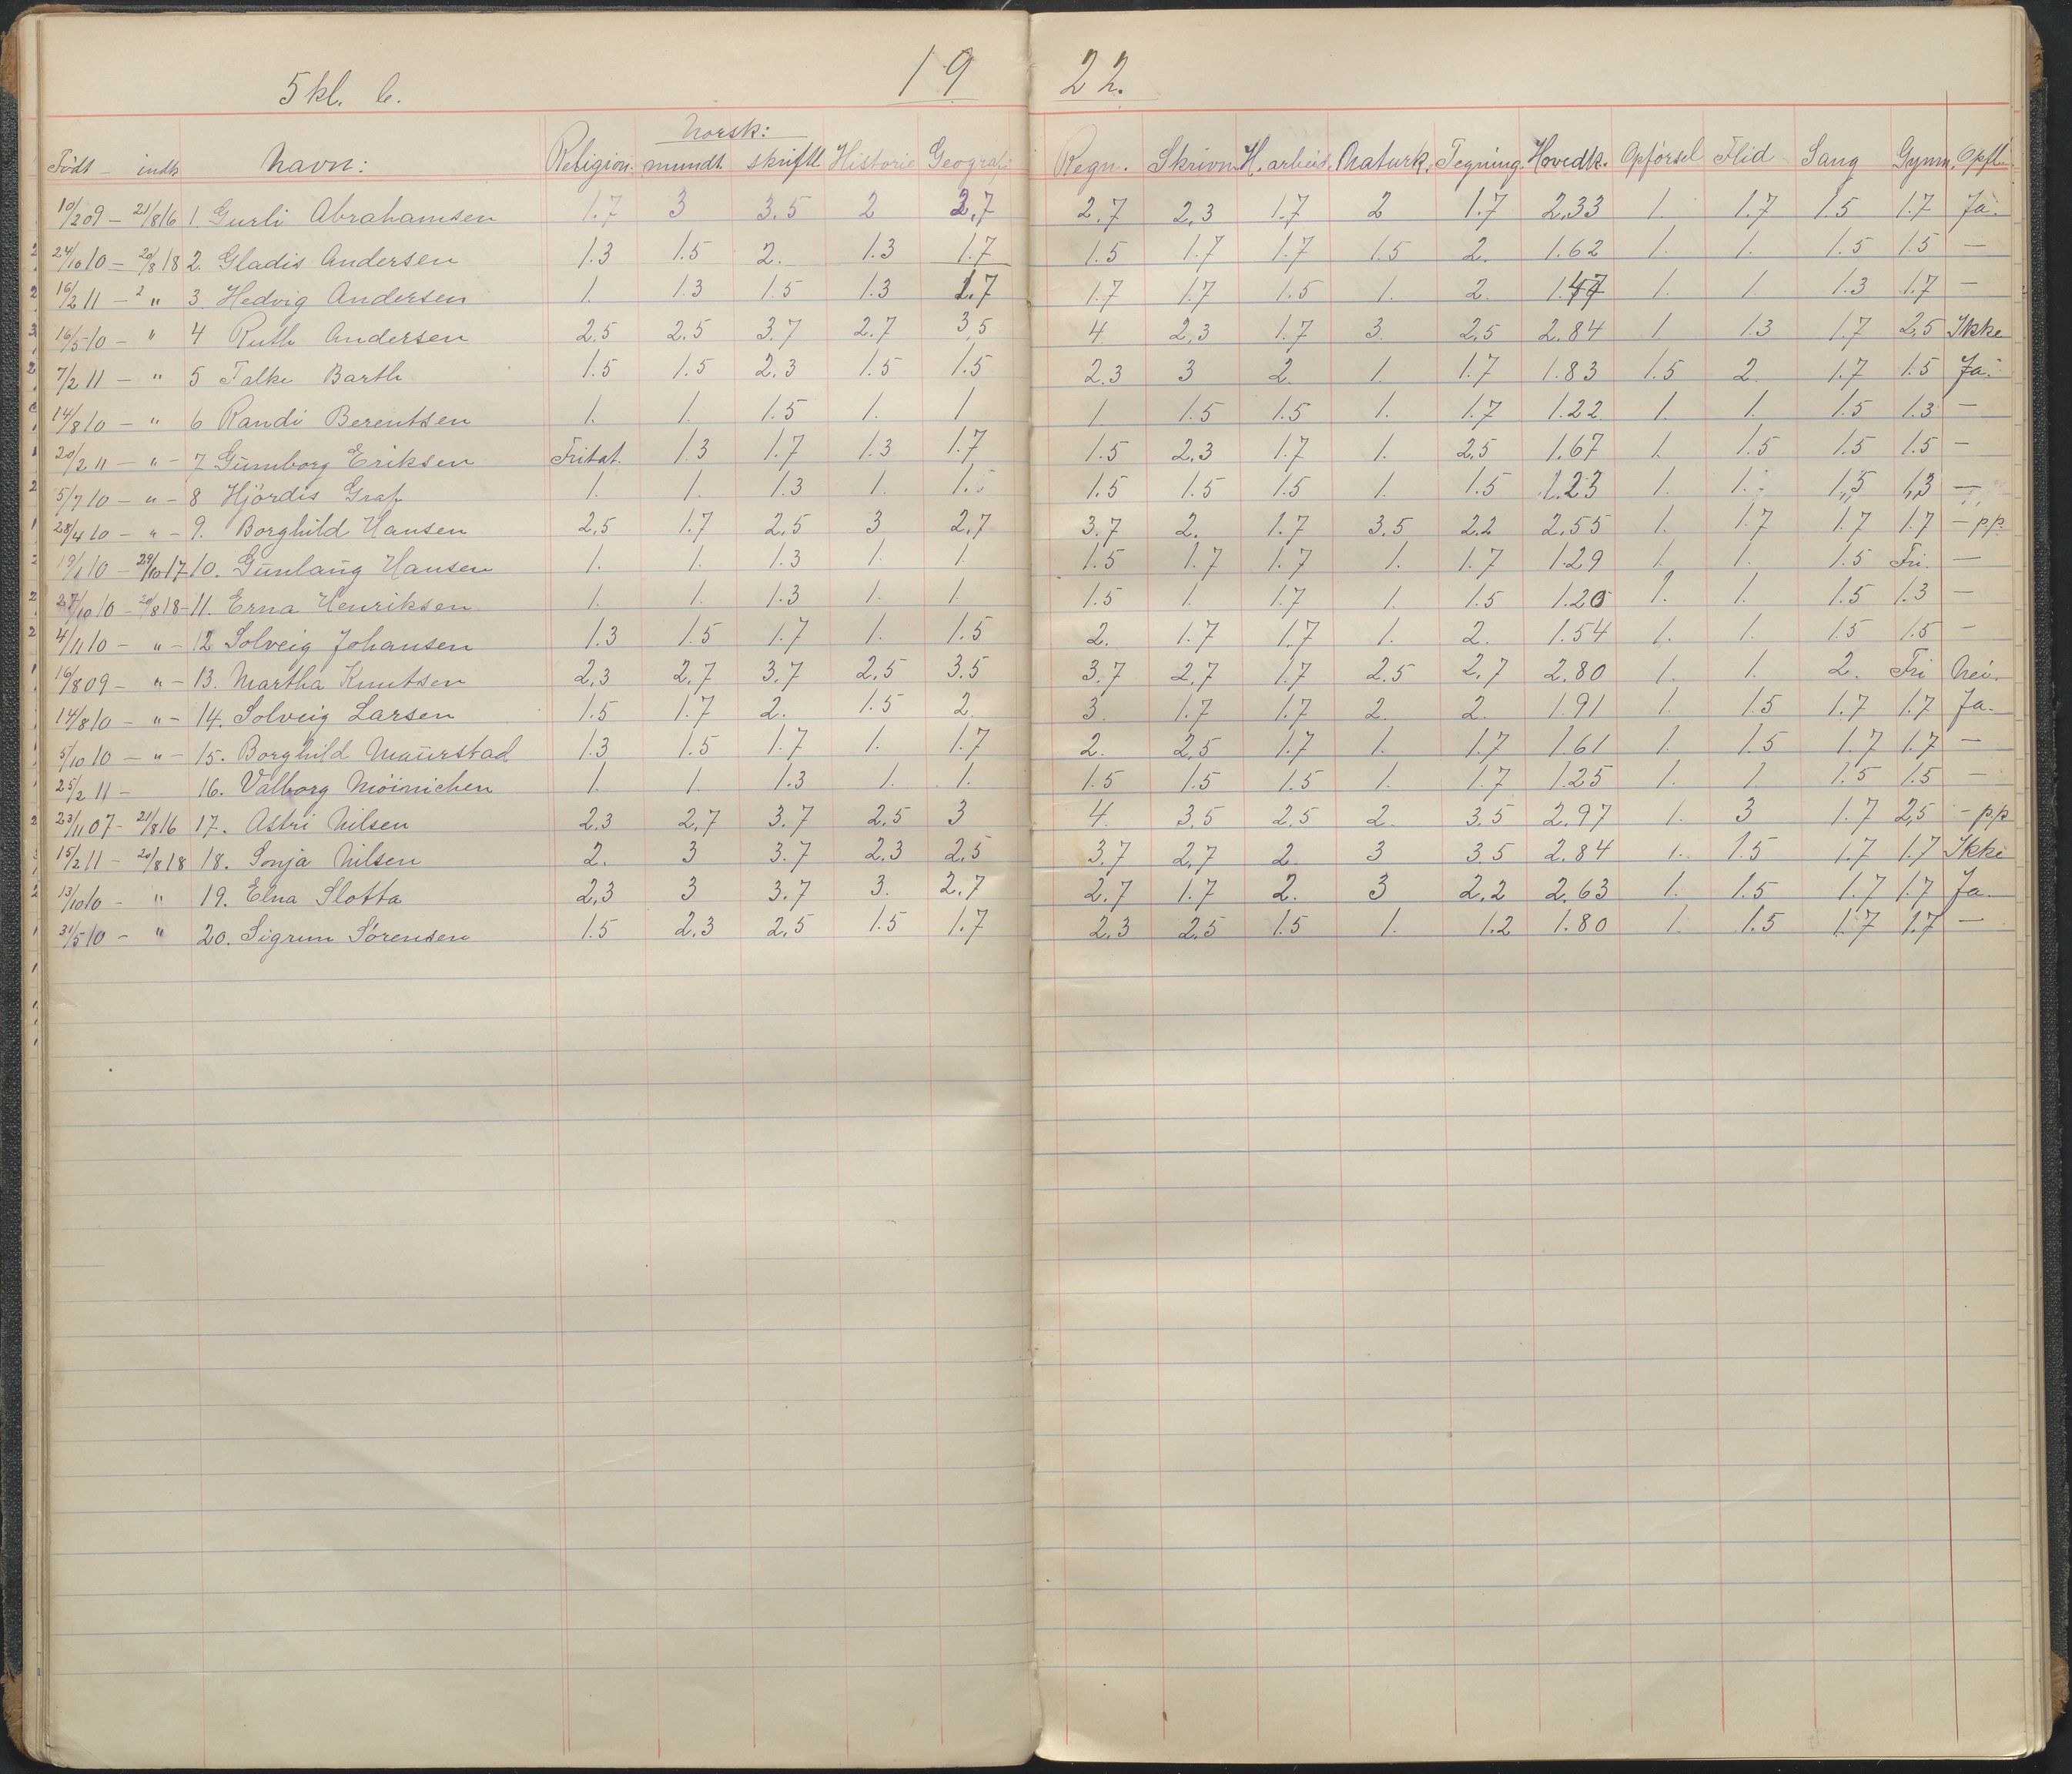 5 kl. b. 19 22.
Norsk:
Födt - indk Navn: Religion. mundt. skriftl. Historie Geograf. Regn. Skrivn. H. arbeid. Naturk. Tegning. Hovedk. Opförsel Flid Sang Gymn. Opfl.
10/2 09 - 21/8 16 1. Gurli Abrahamsen 1.7 3 3.5 2 2,7 2.7 2,3 1.7 2 1.7 2,33 1. 1.7 1.5 1.7 Ja.
24/10 10 - 20/8 18 2. Gladis Andersen 1.3 1.5 2. 1.3 1.7 1.5 1.7 1.7 1.5 2. 1.62 1. 1. 1.5 1.5 -
16/2 11 - 2 " 3 Hedvig Andersen 1. 1.3 1.5 1.3 1.7 1.7 1.7 1.5 1. 2. 1.47 1. 1. 1.3 1.7 -
16/5 10 - " 4 Ruth Andersen 2.5 2.5 3.7 2.7 3,5 4. 2,3 1.7 3. 2,5 2.84 1 1.3 1.7 2,5 Ikke
7/2 11 - " 5 Falke Barth 1.5 1.5 2.3 1.5 1.5 2.3 3 2. 1. 1.7 1.83 1.5 2. 1.7 1.5 Ja.
14/8 10 - " 6 Randi Berentsen 1. 1. 1.5 1. 1 1. 1.5 1.5 1. 1.7 1.22 1. 1. 1.5 1.3 -
20/2 11 - " - 7 Gunnborg Eriksen Fritat. 1.3 1.7 1.3 1.7 1.5 2.3 1.7 1. 2.5 1.67 1. 1.5 1.5 1.5 -
5/7 10 - " - 8 Hjördis Graf 1. 1. 1.3 1. 1.5 1.5 1.5 1.5 1. 1.5 1.23 1. 1. 1,5 1,3 -
28/4 10 - " - 9. Borghild Hansen 2,5 1.7 2,5 3 2,7 3.7 2. 1.7 3.5 2.2 2.55 1. 1.7 1.7 1.7 - p.p.
19/1 10 - 29/10 17 10. Gunlaug Hansen 1. 1. 1.3 1. 1. 1.5 1.7 1.7 1. 1.7 1.29 1. 1. 1.5 Fri. -
27/10 10 - 20/8 18 - 11. Erna Henriksen 1. 1. 1.3 1. 1. 1.5 1. 1.7 1. 1.5 1.20 1. 1. 1.5 1.3 -
4/11 10 - " - 12 Solveig Johansen 1.3 1.5 1.7 1. 1.5 2. 1.7 1.7 1. 2. 1.54 1. 1. 1.5 1.5 -
16/8 09 - " - 13. Martha Knutsen 2,3 2,7 3.7 2,5 3.5 3.7 2,7 1.7 2.5 2,7 2.80 1. 1. 2. Fri Nei.
14/8 10 - " - 14. Solveig Larsen 1.5 1.7 2. 1.5 2. 3. 1.7 1.7 2. 2. 1.91 1. 1.5 1.7 1.7 Ja.
5/10 10 - " - 15. Borghild Maurstad 1.3 1.5 1.7 1. 1.7 2. 2,5 1.7 1. 1.7 1.61 1. 1.5 1.7 1.7 -
25/2 11 - 16. Valborg Möinichen 1. 1. 1.3 1. 1. 1.5 1.5 1.5 1. 1.7 1.25 1. 1. 1.5 1.5 -
23/11 07 - 21/8 16 17. Astri Nilsen 2,3 2,7 3.7 2,5 3 4. 3.5 2.5 2. 3.5 2.97 1. 3 1.7 2,5 - p.p
15/2 11 - 20/8 18 18. Sonja Nilsen 2. 3 3.7 2,3 2,5 3,7 2,7 2. 3 3.5 2.84 1. 1.5 1.7 1.7 Ikke
13/10 10 - " 19. Elna Slotta 2,3 3 3.7 3. 2.7 2.7 1.7 2. 3 2,2 2,63 1. 1.5 1.7 1.7 Ja.
31/5 10 - " 20. Sigrun Sörensen 1.5 2.3 2,5 1.5 1.7 2,3 2.5 1.5 1. 1.2 1.80 1. 1.5 1.7 1.7 -